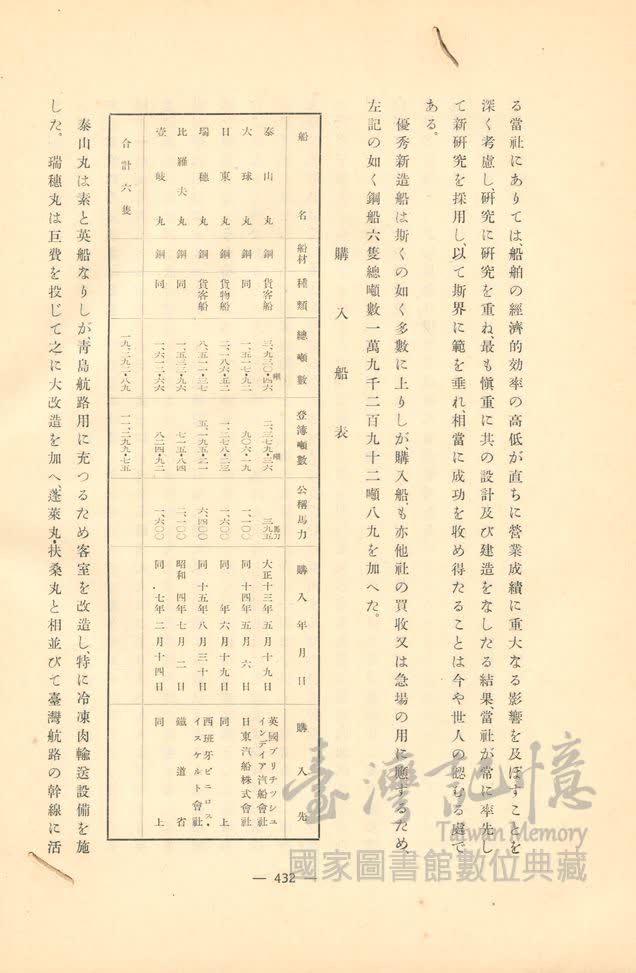 る當社にありては、船舶の經濟的効率の高低が直ちに營業成績に重大なる影響を及ぼすことを
深く考慮し、研究に研究を重ね、最も愼重に其の設計及び建造をなしたる結果、當社が常に率先し
て新研究を採用し、以て斯界に範を垂れ、相當に成功を收め得たることは今や世人の認むる處で
ある。
優秀新造船は斯くの如く多數に上りしが、購入船も亦他社の買收又は急場の用に應ずるため、
左記の如く鋼船六隻總噸數一萬九千二百九十二噸八九を加へた。
購入船表
船名 船材 種類 總噸數 登簿噸數 公稱馬力 購入年月日 購入先
泰山丸 鋼 貨客船 三、九三〇・四六噸 二、三七九・三六噸 三九五馬力 大正十三年五月十九日 英國ブリチッシュインデイア汽船會社
大球丸 鋼 同 一、五一七・九二 九〇六・一九 一、一〇〇 同十四年五月六日 日東汽船株式會社
日東丸 鋼 貨物船 二、一八六・五二 一、二七八・三三 一、六〇〇 同年六月十九日 同上
瑞穗丸 鋼 貨客船 八、五一一・三七 五、一九五・二一 六、四〇〇 同十五年八月三十日 西班牙ピニロス・イスケルト會社
比羅夫丸 鋼 同 一、五三三・九六 七一五・八四 二、一〇〇 昭和四年七月二日 鐵道省
壹岐丸 鋼 同 一、六一二・六六 八二四・九二 一、六〇〇 同七年二月十四日 同上
合計六隻 一九、二九二・八九 一一、二九九・七五
泰山丸は素と英船なりしが、靑島航路用に充つるため客室を改造し、特に冷凍肉輸送設備を施
した。瑞穗丸は巨費を投じて之に大改造を加へ、蓬萊丸・扶桑丸と相並びて臺灣航路の幹線に活
— 432 —
臺灣記憶
Taiwan Memory
國家圖書館數位典藏